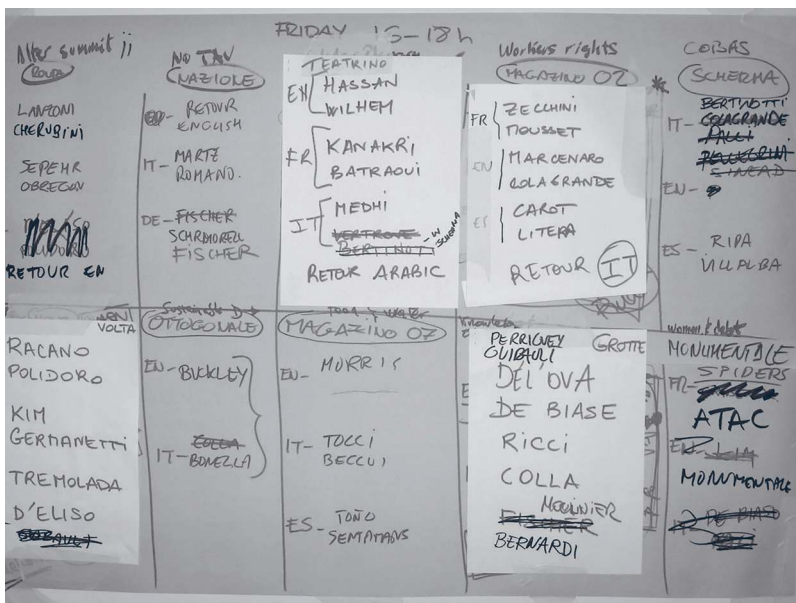 FRIDAY 15-18h
Alter summit
LANZONI
CHERUBINI
SEPEHR
OBREGON
RETOUR EN
NO TAV
NAZIONE
RETOUR
ENGLISH
IT- MARTZ
ROMANO.
DE- FISCHER
SCHRMORELL
FISCHER
TEATRINO
EN HASSAN
WILHEM
FR KANAKRI
BATRAOUI
IT MEDHI
VERTROVE
BERTINOT
RETOUR ARABIC
Workers rights
MAGAZINO 02
FR ZECCHINI
MOUSSET
EN MARCENARO
COLAGRANDE
ES CAROT
LITERA
RETOUR IT
COBAS
SCHERMA
BERTINOTTI
IT- COLAGRANDE
PALLI
PELLEGRINI
SINEAD
EN-
ES- RIPA
VILLALBA
VOLTA
RACANO
POLIDORO
KIM
GERMANETTI
TREMOLADA
D'ELISO
OTTOGONALE
EN- BUCKLEY
COLLA
IT- BONELLA
MAGAZINO 07
EN- MORRIS
IT- TOCCI
BECCUI
ES- TOÑO
SENTAMANS
GROTTE
PERRIGUEY
GUIBAULT
DELL'OVA
DE BIASE
RICCI
COLLA
MOUNIER
FISCHER
BERNARDI
MONUMENTALE
SPIDERS
FR-
ATAC
MONUMENTALE
DE BIASE